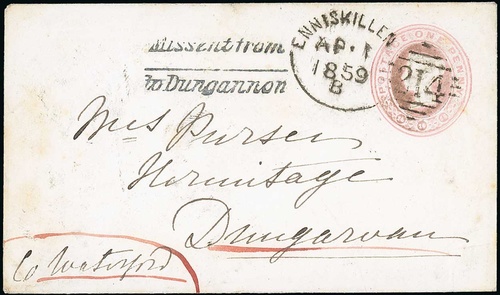 Missent from
to Dungannon
ENNISKILLEN
AP 1
1859
B
POSTAGE ONE PENNY
214
Mrs Purser
Hermitage
Dungarvan
Co Waterford